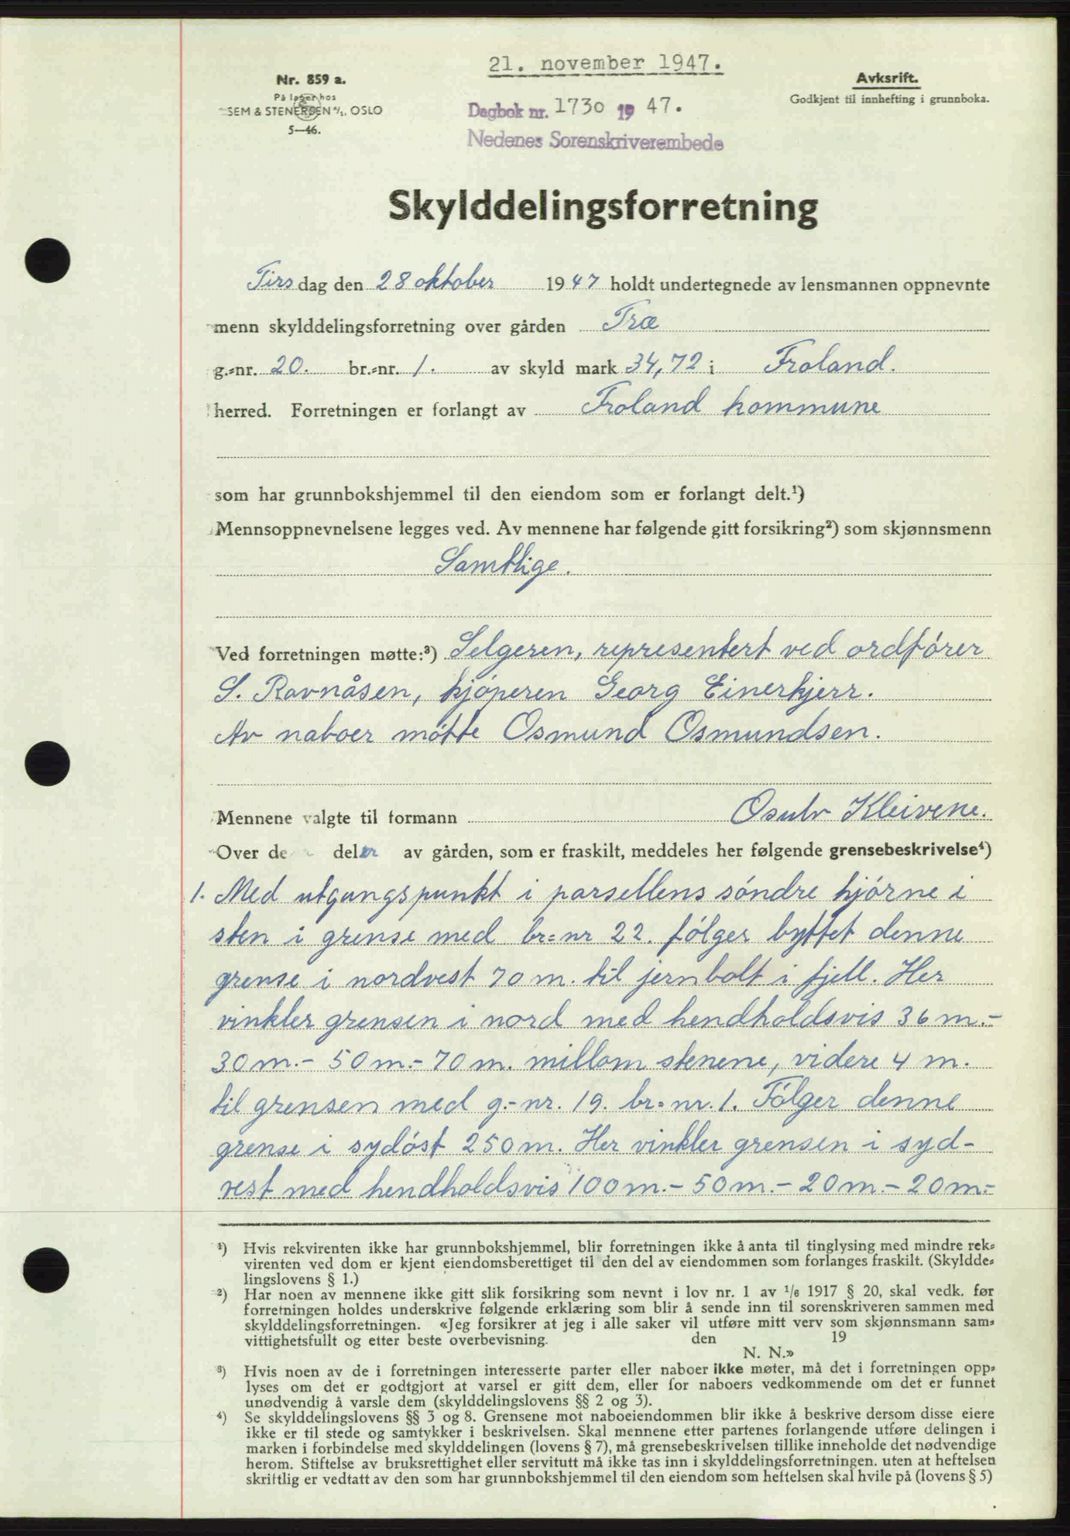 21. november 1947.
Nr. 859 a.
På lager hos
SEM & STENERSEN A/S, OSLO
5—46.
Avksrift.
Godkjent til innhefting i grunnboka.
Dagbok nr. 1730 1947.
Nedenes Sorenskriverembede
Skylddelingsforretning
Tirsdag den 28 oktober 1947 holdt undertegnede av lensmannen oppnevnte
menn skylddelingsforretning over gården Træ
g.-nr. 20. br.-nr. 1. av skyld mark 34,72 i Froland.
herred. Forretningen er forlangt av Froland kommune
som har grunnbokshjemmel til den eiendom som er forlangt delt.¹)
Mennsoppnevnelsene legges ved. Av mennene har følgende gitt forsikring²) som skjønnsmenn
Samtlige.
Ved forretningen møtte:³) Selgeren, representert ved ordfører
S. Ravnåsen, kjøperen Georg Einerkjerr.
Av naboer møtte Osmund Osmundsen.
Mennene valgte til formann Osulv Kleivene.
Over de deler av gården, som er fraskilt, meddeles her følgende grensebeskrivelse⁴)
1. Med utgangspunkt i parsellens søndre hjørne i
sten i grense med br=nr 22. følger byttet denne
grense i nordvest 70 m. til jernbolt i fjell. Her
vinkler grensen i nord med hendholdsvis 36 m.-
30 m.- 50 m.- 70 m. millom stenene, videre 4 m.
til grensen med g.-nr. 19. br=nr. 1. Følger denne
grense i sydøst 250 m. Her vinkler grensen i syd-
vest med hendholdsvis 100 m.- 50 m.- 20 m.- 20 m.-
¹) Hvis rekvirenten ikke har grunnbokshjemmel, blir forretningen ikke å anta til tinglysing med mindre rek-
virenten ved dom er kjent eiendomsberettiget til den del av eiendommen som forlanges fraskilt. (Skyldde-
lingslovens § 1.)
²) Har noen av mennene ikke gitt slik forsikring som nevnt i lov nr. 1 av 1/6 1917 § 20, skal vedk. før
forretningen holdes underskrive følgende erklæring som blir å sende inn til sorenskriveren sammen med
skylddelingsforretningen. «Jeg forsikrer at jeg i alle saker vil utføre mitt verv som skjønnsmann sam-
vittighetsfullt og etter beste overbevisning. den 19
N. N.»
³) Hvis noen av de i forretningen interesserte parter eller naboer ikke møter, må det i forretningen opp-
lyses om det er godtgjort at varsel er gitt dem, eller for naboers vedkommende om det er funnet
unødvendig å varsle dem (skylddelingslovens §§ 2 og 3).
⁴) Se skylddelingslovens §§ 3 og 8. Grensene mot naboeiendommen blir ikke å beskrive dersom disse eiere
ikke er til stede og samtykker i beskrivelsen. Skal mennene etter partenes forlangende utføre delingen i
marken i forbindelse med skylddelingen (lovens § 7), må grensebeskrivelsen tillike inneholde det nødvendige
herom. Stiftelse av bruksrettighet eller servitutt må ikke tas inn i skylddelingsforretningen. uten at heftelsen
skriftlig er vedtatt av den som har grunnbokshjemmel til den eiendom som heftelsen skal hvile på (lovens § 5)